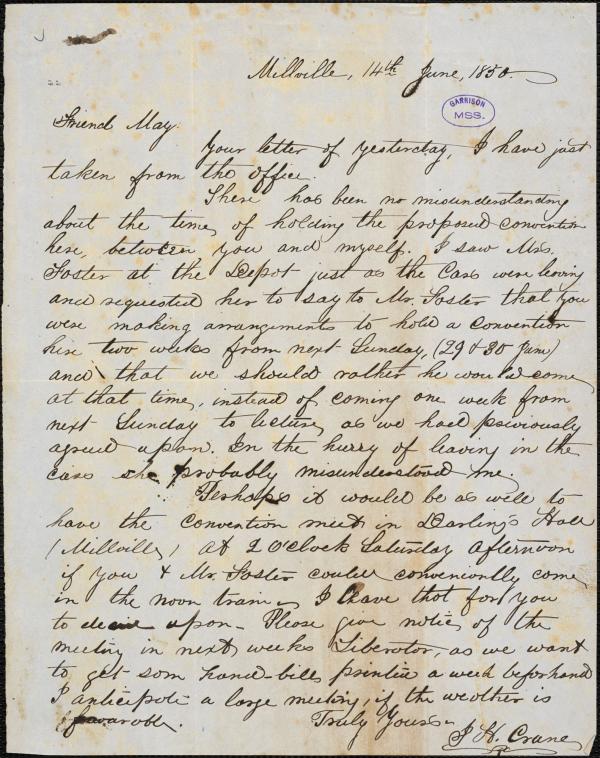 Millville, 14th June, 1850.
GARRISON
MSS.
Friend May.
Your letter of yesterday, I have just
taken from the office.
There has been no misunderstanding
about the time, of holding the proposed convention
here, between you and myself. I saw Mrs.
Foster at the Depot just as the Cars were leaving
and requested her to say to Mr. Foster that you
were making arrangements to hold a convention
here two weeks from next Sunday, (29 & 30 June)
and that we should rather he would come
at that time, instead of coming one week from
next Sunday to lecture, as we had previously
agreed upon. In the hurry of leaving in the
cars she probably misunderstood me.
Perhaps it would be as well to
have the convention meet in Darling's Hall
(Millville) at 2 O'clock Saturday afternoon
if you & Mr. Foster could conveniently come
in the noon train. I leave that for you
to upon. Please give notice of the
meeting in next weeks Liberator, as we want
to get som hand-bills printed a week beforhand
I anticipate a large meeting, if the weather is
favorable. Truly Yours
H. Crane